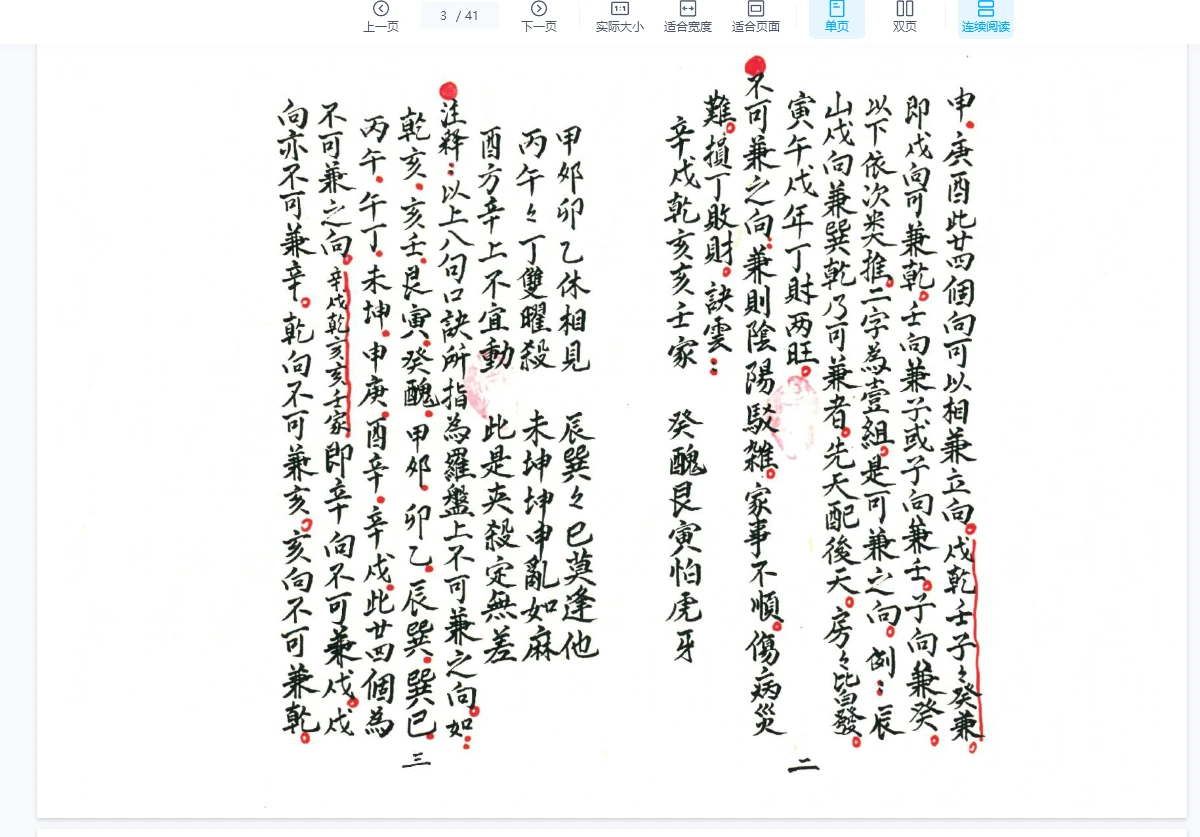 上一页
3 / 41
下一页
1:1
实际大小
适合宽度
适合页面
单页
双页
连续阅读
申。庚酉此廿四個向可以相兼立向。戌乾壬子々癸兼。
即戌向可兼乾。壬向兼子或子向兼壬。子向兼癸。
以下依次类推。二字為壹組。是可兼之向。例：辰
山戌向兼巽乾乃可兼者。先天配後天。房々皆發。
寅午戌年丁財两旺。
不可兼之向：兼則陰陽駁雜。家事不順。傷病災
難。損丁敗財。訣雲：
辛戌乾亥亥壬家 癸醜艮寅怕虎牙
二
甲卯卯乙休相見 辰巽々巳莫逢他
丙午々丁雙曜殺 未坤坤申亂如麻
酉方辛上不宜動 此是夾殺定無差
注释：以上八句口訣所指為羅盤上不可兼之向。如：
乾亥。亥壬。艮寅。癸醜。甲卯。卯乙。辰巽。巽巳。
丙午。午丁。未坤。申庚。酉辛。辛戌。此廿四個為
不可兼之向。辛戌乾亥亥壬家。即辛向不可兼戌。戌
向亦不可兼辛。乾向不可兼亥。亥向不可兼乾。
三